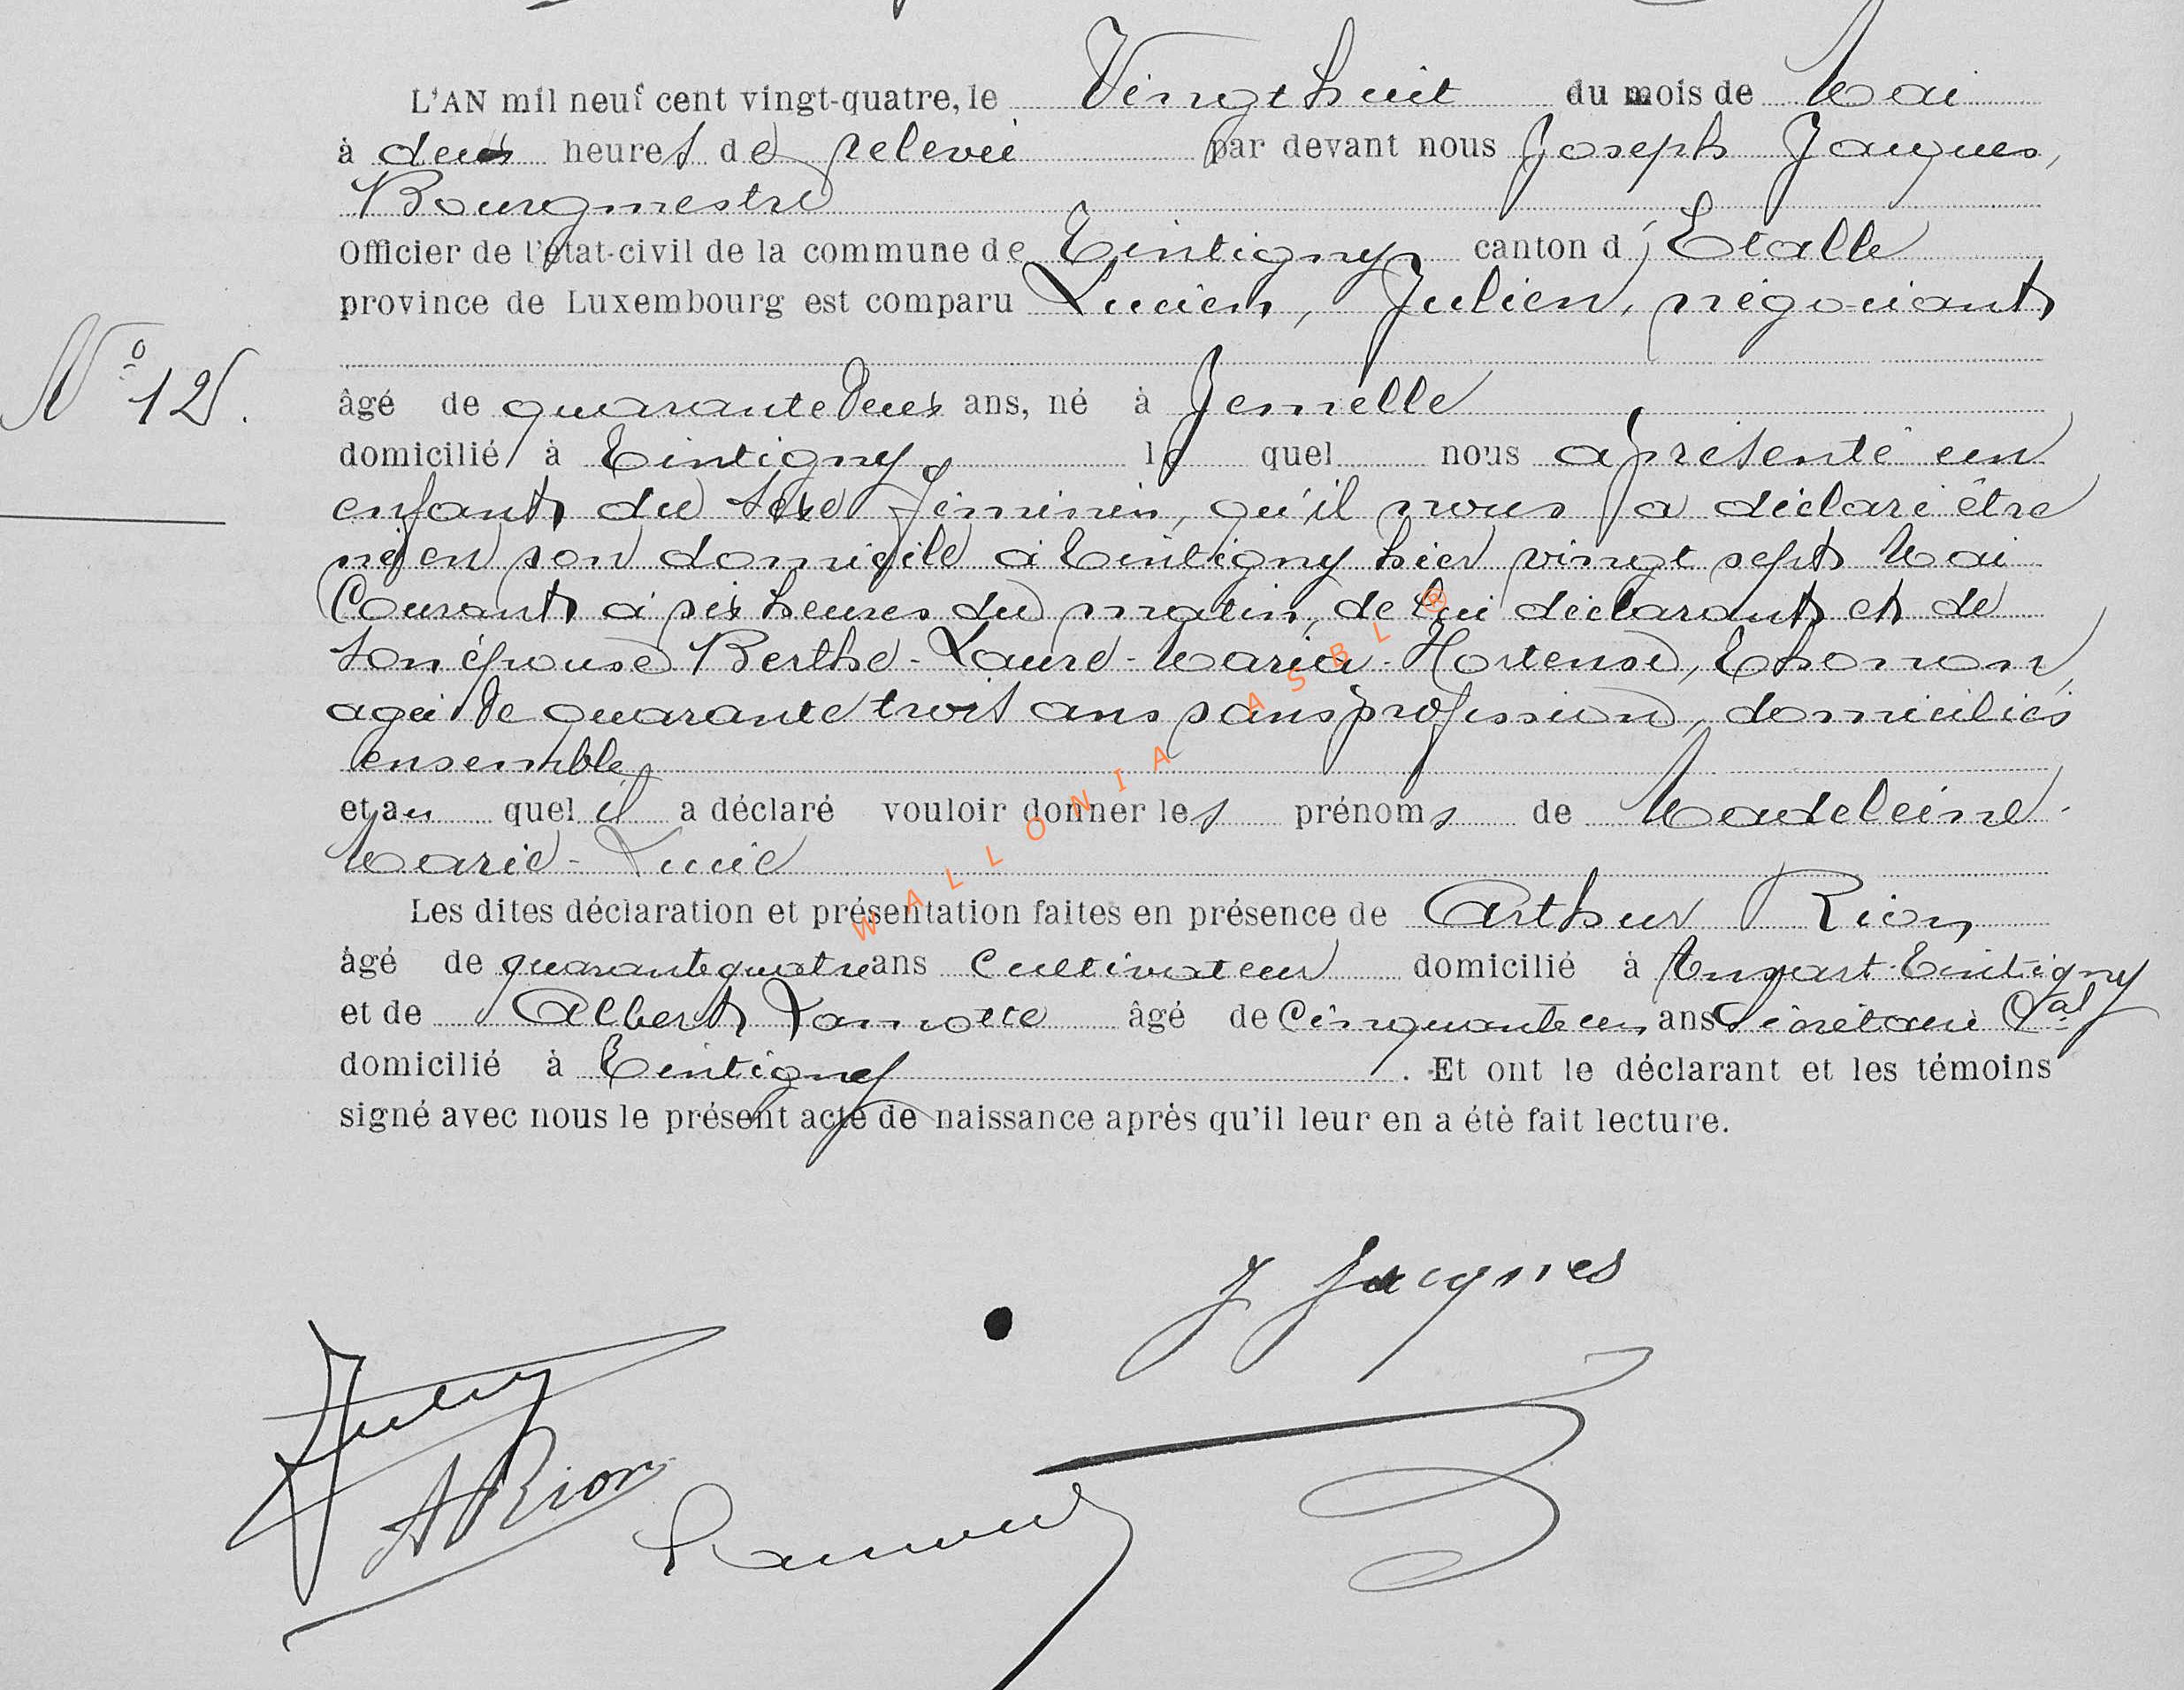 L'AN mil neuf cent vingt-quatre, le Vingt huit du mois de Mai
à deux heures de relevée par devant nous Joseph Jacques,
Bourgmestre
Officier de l'état-civil de la commune de Tintigny canton d' Etalle
province de Luxembourg est comparu Lucien, Julien, négociant
N° 12.
âgé de quarante deux ans, né à Jemelle
domicilié à Tintigny le quel nous a présenté un
enfant du sexe féminin, qu'il nous a déclaré être
né en son domicile à Tintigny hier vingt sept Mai
Courant à six heures du matin, de lui déclarant et de
son épouse Berthe-Laure-Maria-Hortense, Thonon,
agée de quarante trois ans sans profession, domiciliés
ensemble
et au quel il a déclaré vouloir donner les prénoms de Madeleine-
Marie-Lucie
Les dites déclaration et présentation faites en présence de Arthur Rion
âgé de quarante quatre ans Cultivateur domicilié à Ansart-Tintigny
et de Albert Lannoue âgé de Cinquante un ans Secrétaire Cal
domicilié à Tintigny. Et ont le déclarant et les témoins
signé avec nous le présent acte de naissance après qu'il leur en a été fait lecture.
J Jacques
ARion
WALLONIA ASBL ®